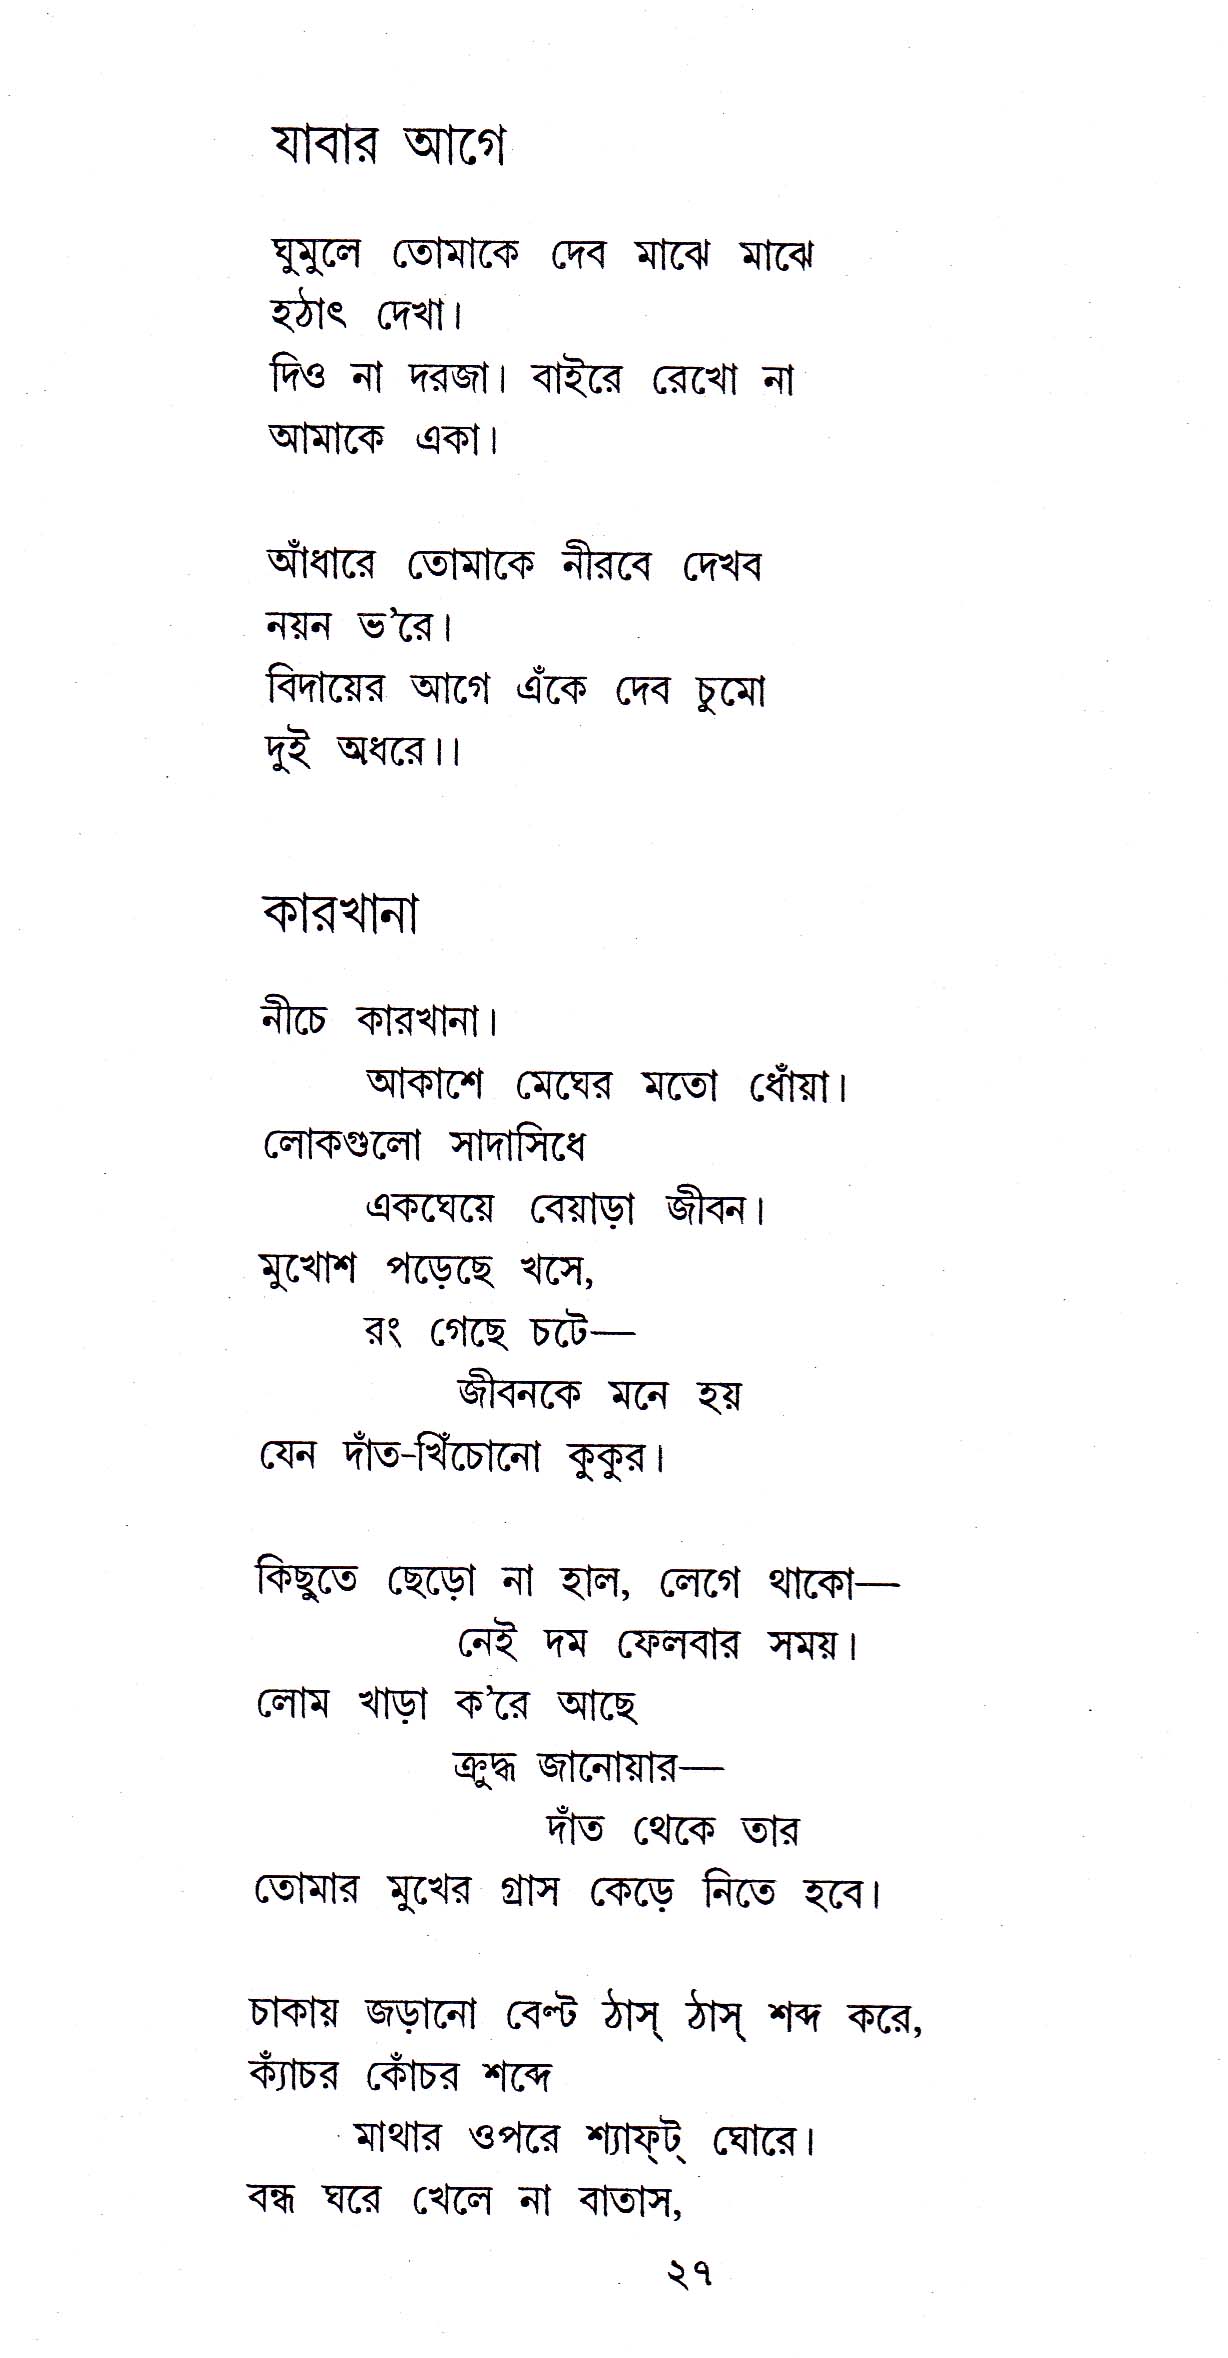 যাবার আগে
ঘুমুলে তোমাকে দেব মাঝে মাঝে
হঠাৎ দেখা।
দিও না দরজা। বাইরে রেখো না
আমাকে একা।
আঁধারে তোমাকে নীরবে দেখব
নয়ন ভ’রে।
বিদায়ের আগে এঁকে দেব চুমো
দুই অধরে।।
কারখানা
নীচে কারখানা।
আকাশে মেঘের মতো ধোঁয়া।
লোকগুলো সাদাসিধে
একঘেয়ে বেয়াড়া জীবন।
মুখোশ পড়েছে খসে,
রং গেছে চটে—
জীবনকে মনে হয়
যেন দাঁত-খিঁচোনো কুকুর।
কিছুতে ছেড়ো না হাল, লেগে থাকো—
নেই দম ফেলবার সময়।
লোম খাড়া ক’রে আছে
ক্রুদ্ধ জানোয়ার—
দাঁত থেকে তার
তোমার মুখের গ্রাস কেড়ে নিতে হবে।
চাকায় জড়ানো বেল্ট ঠাস্ ঠাস্ শব্দ করে,
ক্যাঁচর কোঁচর শব্দে
মাথার ওপরে শ্যাফ্‌ট্ ঘোরে।
বন্ধ ঘরে খেলে না বাতাস,
২৭